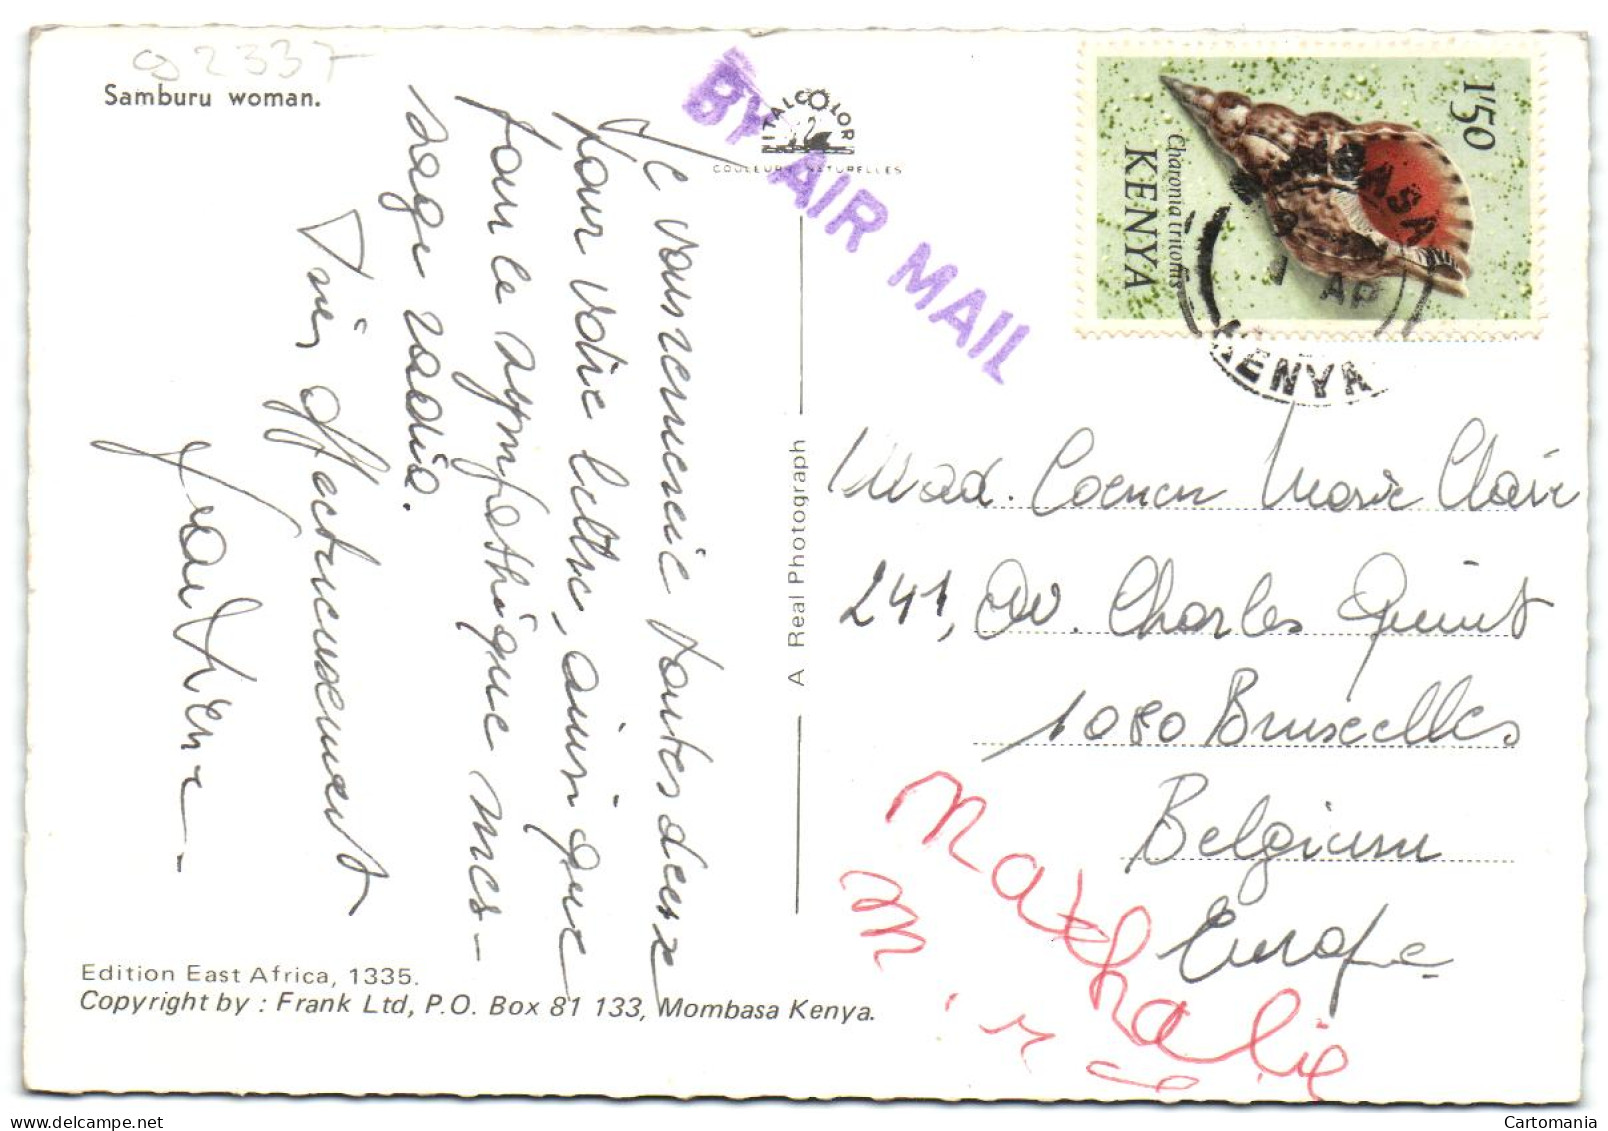 002337
Samburu woman.
BY AIR MAIL
ITALCOLOR
COULEURS NATURELLES
1'50
Charonia tritonis
KENYA
MOMBASA
AP
KENYA
Je vous remercie toutes deux
pour votre lettre, ainsi que
pour le sympathique mes-
sage radio.
Très affectueusement
A Real Photograph
Mad. Coenen Marie Claire
241, Av. Charles Quint
1080 Bruxelles
Belgium
Europe
Mathalie
Edition East Africa, 1335.
Copyright by : Frank Ltd, P.O. Box 81 133, Mombasa Kenya.
Cartomania